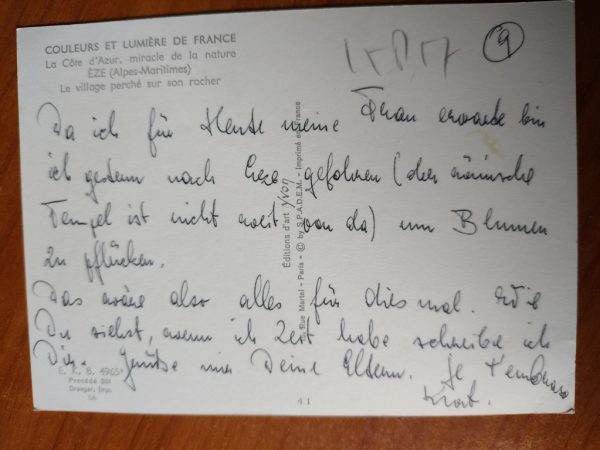 COULEURS ET LUMIÈRE DE FRANCE
La Côte d'Azur, miracle de la nature
ÈZE (Alpes-Maritimes)
Le village perché sur son rocher
9
Da ich für Heute meine Frau erwarte bin
ich gestern nach Eze gefahren (der römische
Tempel ist nicht weit von da) um Blumen
zu pflücken.
Das wäre also alles für dies mal. Wie
Du siehst, wenn ich Zeit habe schreibe ich
Dir. Grüße mir Deine Eltern. Je t'embrasse
Editions d'art YVON
Rue Martel - Paris - © by S.P.A.D.E.M. - Imprimé en France
E. K. B. 4965
Procédé 301
Draeger, Imp.
41